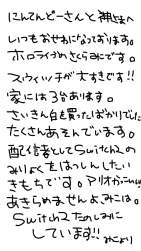 にんてんどーさんと神絵へ
いつもおせわになっております。
ホロライブのさくらみこです。
スウィッチが大すきです!!
家には3台あります。
さいきん白を買ったばかりでした
たくさんあそんでいます。
配信者としてSwitch2の
みりょくをはっしんしたい
きもちです。マリオカートも
あきらめませんよ、みこは。
Switch2たのしみに
しています!!
みこより